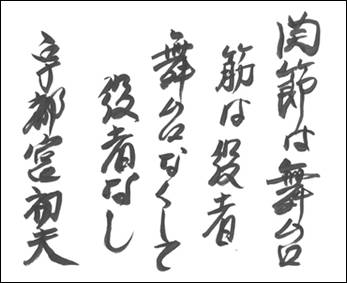 関節は舞台
筋は役者
舞台なくして
役者なし
宇都宮初夫